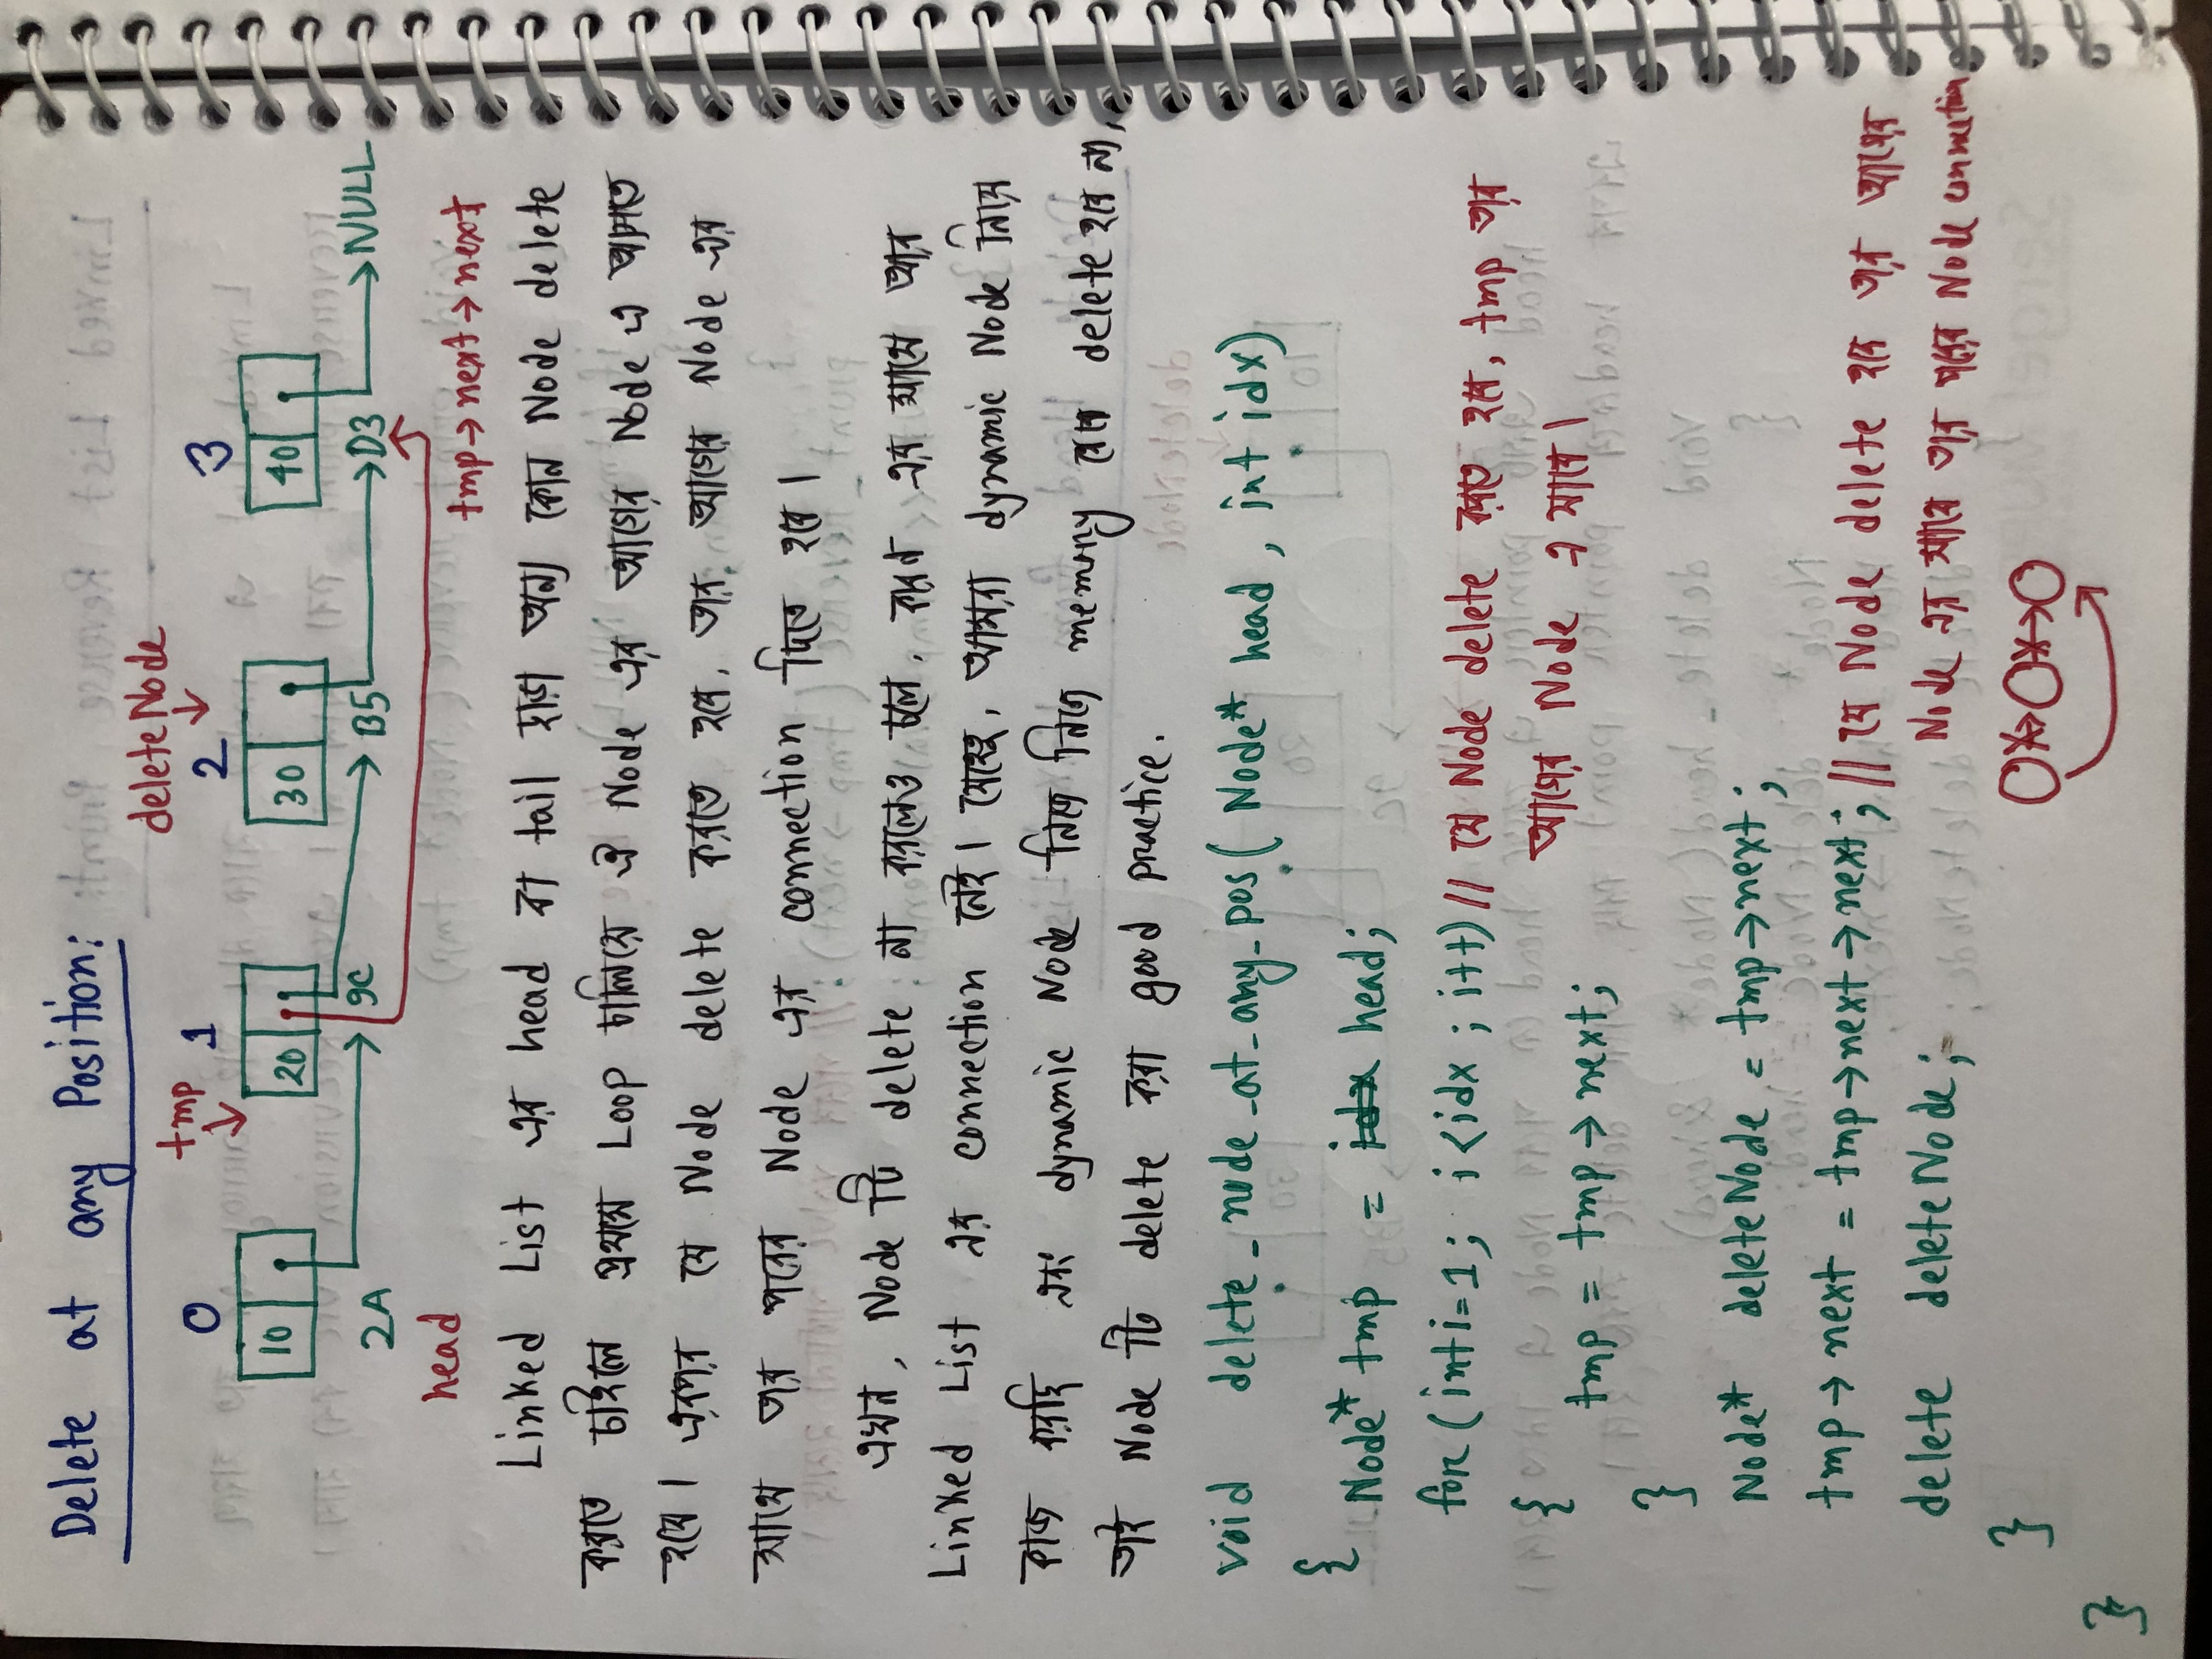 Delete at any Position:
deleteNode
tmp
0 1 2 3
10 20 30 40
2A 9C B5 D3 NULL
head
tmp→next→next
Linked List এর head বা tail ছাড়া অন্য কোন Node delete
করতে চাইলে প্রথমে Loop চালিয়ে ঐ Node এর আগের Node এ আসতে
হবে। এরপর যে Node delete করতে হবে, তার আগের Node এর
সাথে তার পরের Node এর connection দিতে হবে।
এখন, Node টি delete না করলেও চলে, কারন এর সাথে আর
Linked List এর connection নেই। যেহেতু, আমরা dynamic Node নিয়ে
কাজ করছি এবং dynamic Node নিজে নিজে memory থেকে delete হবে না,
তাই Node টি delete করা good practice.
void delete_node_at_any_pos(Node* head, int idx)
{
Node* tmp = idx head;
for(int i=1; i<idx; i++) // যে Node delete করতে হবে, tmp তার
{ আগের Node এ যাবে।
tmp = tmp→next;
}
Node* deleteNode = tmp→next;
tmp→next = tmp→next→next; // যে Node delete হবে তার আগের
delete deleteNode; Node এর সাথে তার পরের Node connection
}
}